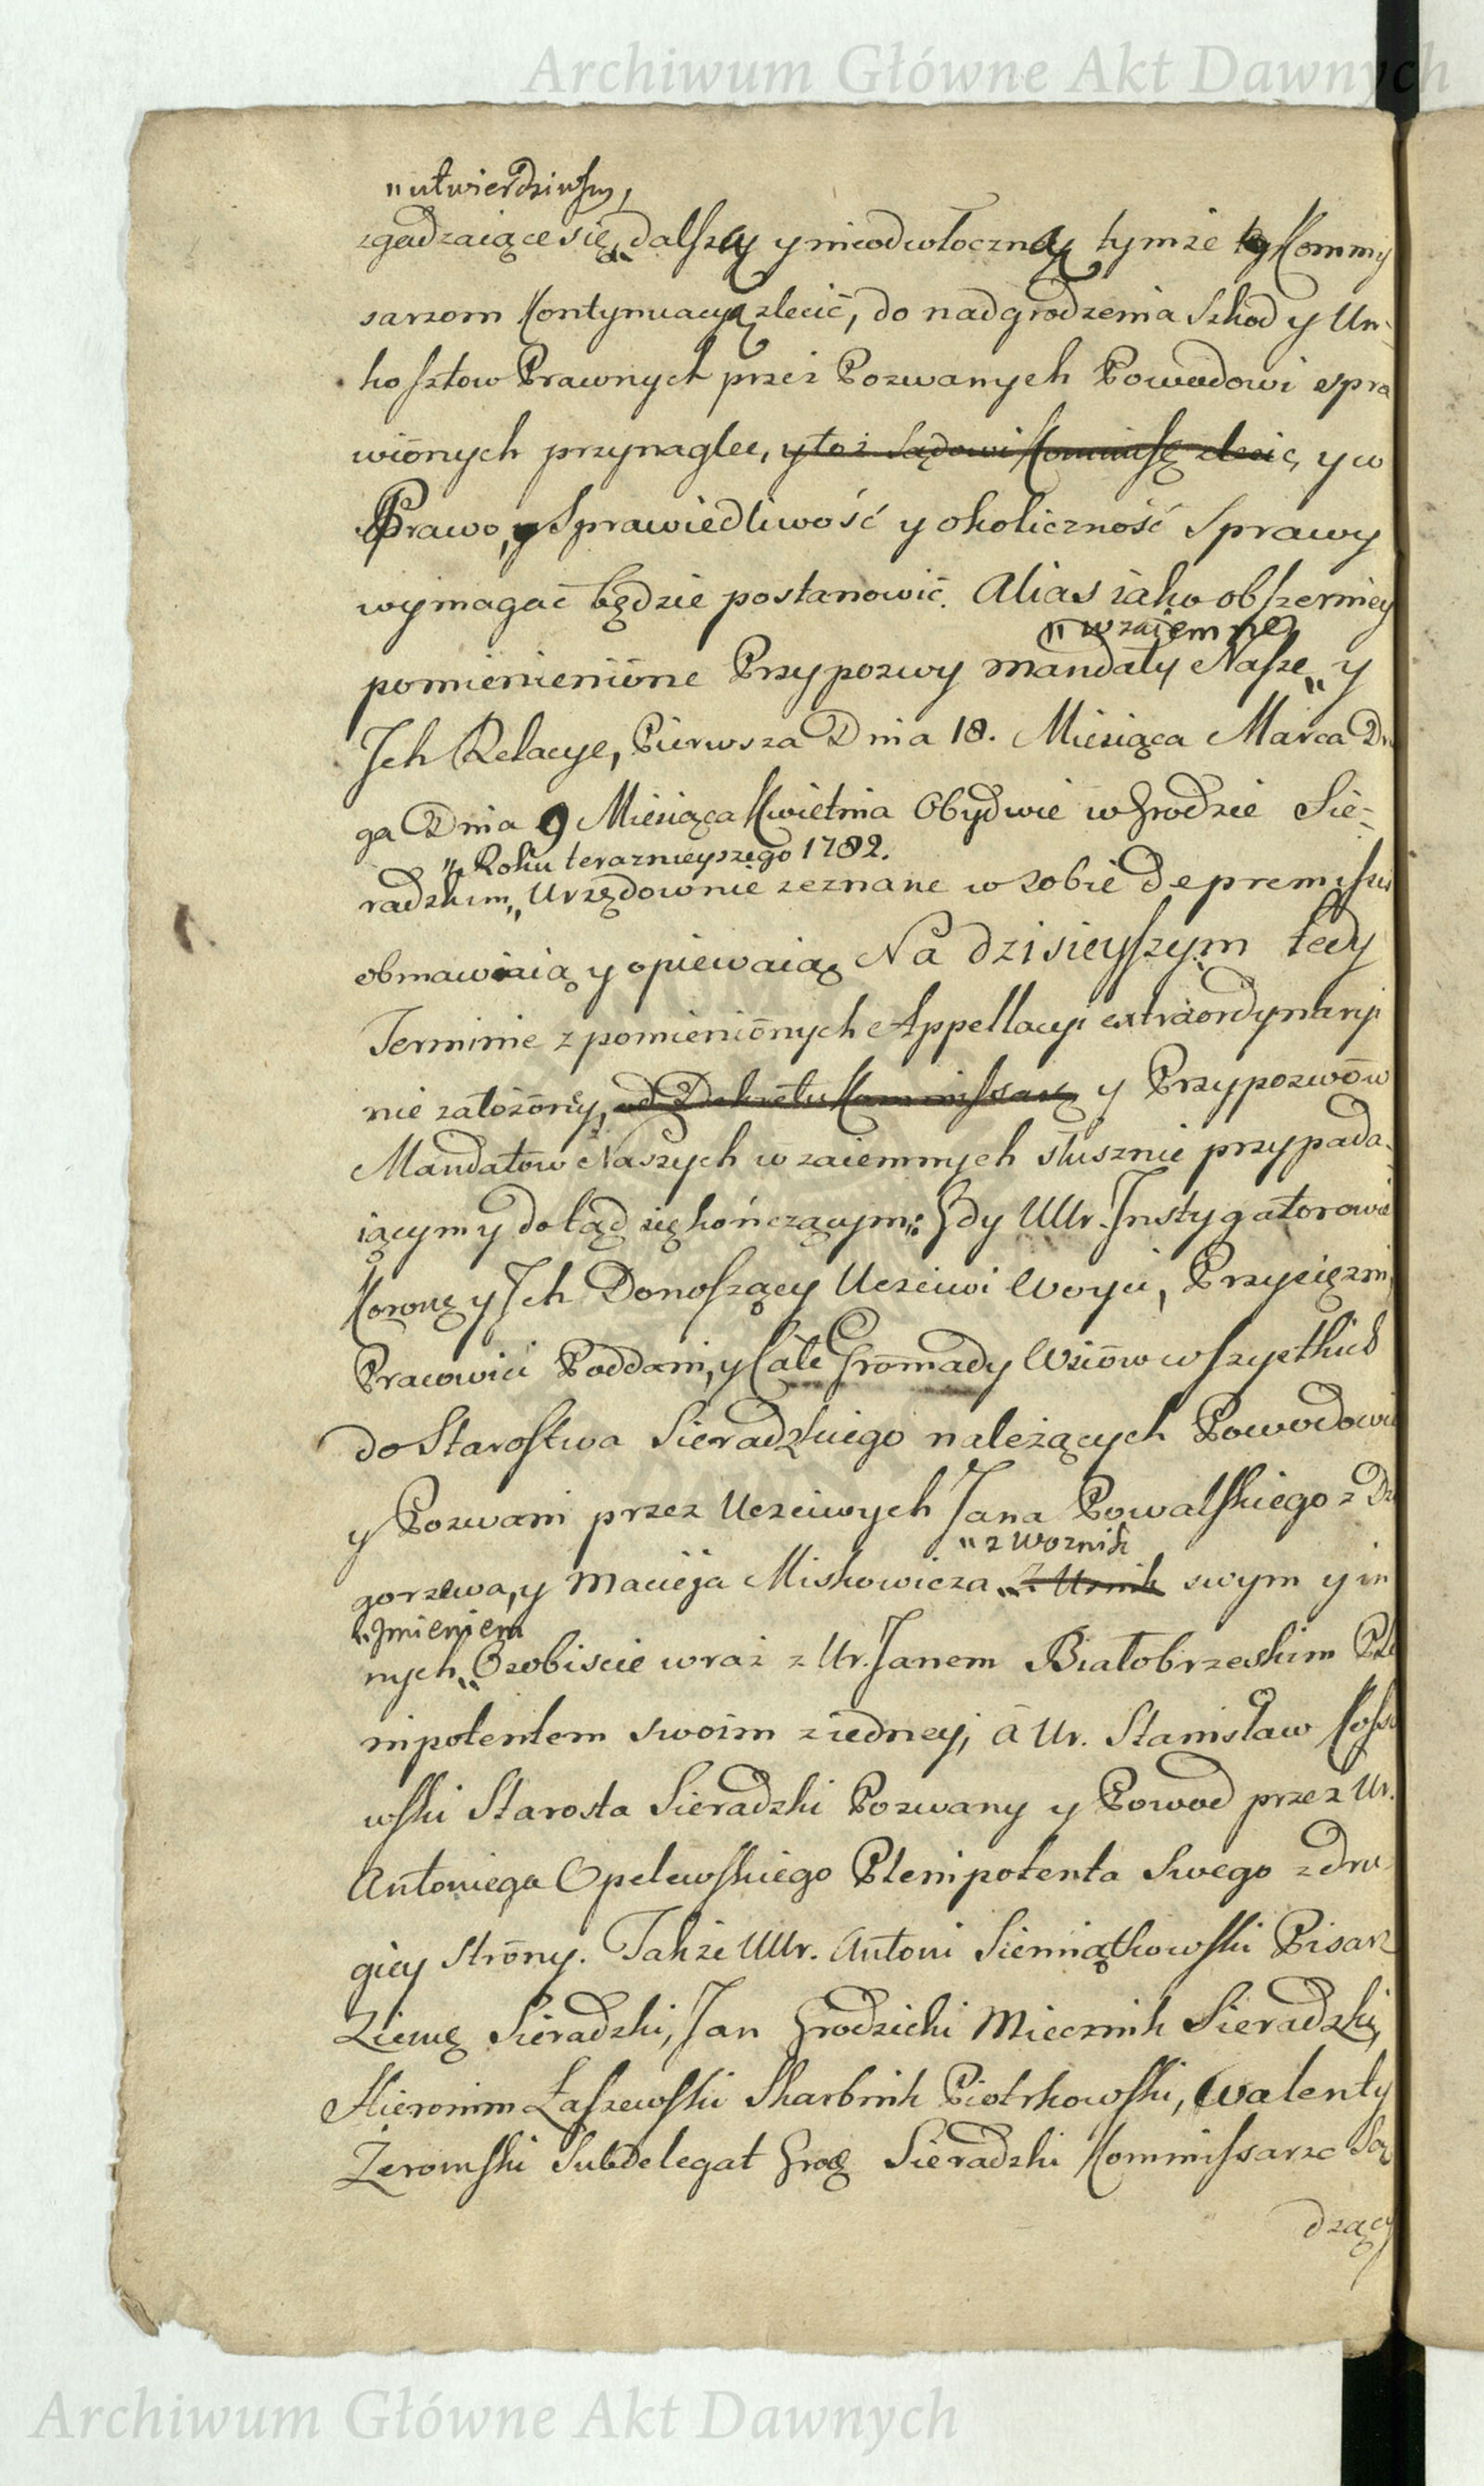 Archiwum Główne Akt Dawnych
"utwierdziwszy,
zgadzaiące się „ dalszą y nieodwłoczną tymże Kommy
sarzom Kontynuacyą zlecić, do nadgrodzenia Szkod y Un-
kosztow Prawnych przez Pozwanych Powodowi spra
wiōnych przynaglec, ytoż Sądowi Kommissę zlecic, y co
Prawo, y Sprawiedliwość y okoliczność Sprawy
wymagać będzie postanowić. Alias iako obszerniey
" wzaiemne
pomienieniōne Przypozwy mandaty Nasze „ y
Jch Relacye, Pierwsza Dnia 18. Miesiąca Marca Dru
ga Dnia 9 Miesiąca Kwietnia Obydwie w Grodzie Sie-
" Roku teraznieyszego 1782.
radzkim „ Urzędownie zeznane w sobie de premissis
obmawiaią y opiewaią Na dzisieyszym tedy
Terminie z pomieniōnych Appellacyi extraordynaryi
nie załozōney, od Dekretu Kommissarz y Przypozwōw
Mandatōw Naszych wzaiemnych słusznie przypada-
iącym y dotąd się kończącym: Gdy UUr. Jnstygatorowie
Koronę y Jch Donoszący Uczciwi Woyci, Przysięzni,
Pracowici Poddani, y Całe Grōmady Wsiōw wszystkich
do Starostwa Sieradzkiego należących Powodowie
y Pozwani przez Uczciwych Jana Powalskiego z Dz
" z Woznik
gorzewa, y Macieja Miskowicza „ z Urnik swym y in
" Jmieniem
nych „ Osobiscie wraz z Ur. Janem Białobrzeskim Ple
nipotentem swoim z iedney, á Ur. Stanisław Kosso
wski Starosta Sieradzki Pozwany y Powod przez Ur.
Antoniego Opelewskiego Plenipotenta Swego z dru-
giey Strōny. Takze UUr. Antoni Siemiątkowski Pisarz
Ziemę Sieradzki, Jan Grodzicki Miecznik Sieradzki,
Hieronim Łaszewski Skarbnik Piotrkowski, Walenty
Żeromski Subdelegat Grodę Sieradzki Kommissarze Są
dzący
Archiwum Główne Akt Dawnych